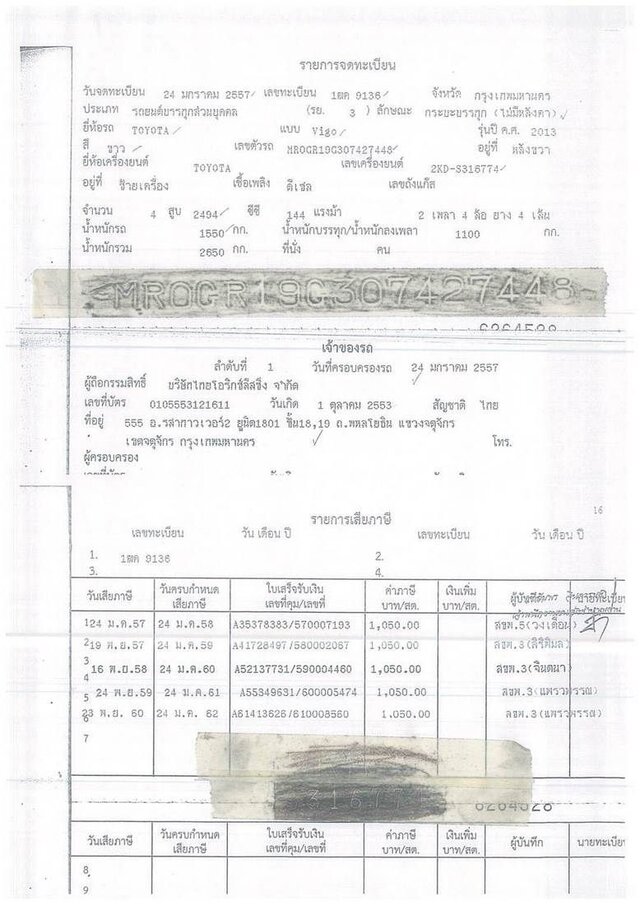 รายการจดทะเบียน
วันจดทะเบียน 24 มกราคม 2557 เลขทะเบียน 1ฒค 9136 จังหวัด กรุงเทพมหานคร
ประเภท รถยนต์บรรทุกส่วนบุคคล (รย. 3) ลักษณะ กระบะบรรทุก (ไม่มีหลังคา)
ยี่ห้อรถ TOYOTA แบบ Vigo รุ่นปี ค.ศ. 2013
สี ขาว เลขตัวรถ MROGR19G307427448 อยู่ที่ หลังขวา
ยี่ห้อเครื่องยนต์ TOYOTA เลขเครื่องยนต์ 2KD-S316774
อยู่ที่ ซ้ายเครื่อง เชื้อเพลิง ดีเซล เลขถังแก๊ส
จำนวน 4 สูบ 2494 ซีซี 144 แรงม้า 2 เพลา 4 ล้อ ยาง 4 เส้น
น้ำหนักรถ 1550 กก. น้ำหนักบรรทุก/น้ำหนักลงเพลา 1100 กก.
น้ำหนักรวม 2650 กก. ที่นั่ง คน
MROGR19G307427448
6264528
เจ้าของรถ
ลำดับที่ 1 วันที่ครอบครองรถ 24 มกราคม 2557
ผู้ถือกรรมสิทธิ์ บริษัทไทยโอริกซ์ลีสซิ่ง จำกัด
เลขที่บัตร 0105553121611 วันเกิด 1 ตุลาคม 2553 สัญชาติ ไทย
ที่อยู่ 555 อ.รสาทาวเวอร์2 ยูนิต1801 ชั้น18,19 ถ.พหลโยธิน แขวงจตุจักร
เขตจตุจักร กรุงเทพมหานคร โทร.
ผู้ครอบครอง
16
รายการเสียภาษี
เลขทะเบียน วัน เดือน ปี เลขทะเบียน วัน เดือน ปี
1. 1ฒค 9136 2.
3. 4.
วันเสียภาษี วันครบกำหนดเสียภาษี ใบเสร็จรับเงิน เลขที่คุม/เลขที่ ค่าภาษี บาท/สต. เงินเพิ่ม บาท/สต. ผู้บันทึก นายทะเบียน
1 24 ม.ค.57 24 ม.ค.58 A35378383/570007193 1,050.00 สขพ.5(วงเดือน)
2 19 พ.ย.57 24 ม.ค.59 A41728497/580002067 1,050.00 สขพ.3(สิริพิมล)
3 16 พ.ย.58 24 ม.ค.60 A52137731/590004460 1,050.00 สขพ.3(จินตนา)
4
5 24 พ.ย.59 24 ม.ค.61 A55349631/600005474 1,050.00 สขพ.3(แพรวพรรณ)
6 23 พ.ย. 60 24 ม.ค. 62 A61413626/610008560 1,050.00 สขพ.3(แพรวพรรณ)
7
6264528
วันเสียภาษี วันครบกำหนดเสียภาษี ใบเสร็จรับเงิน เลขที่คุม/เลขที่ ค่าภาษี บาท/สต. เงินเพิ่ม บาท/สต. ผู้บันทึก นายทะเบีย
8
9